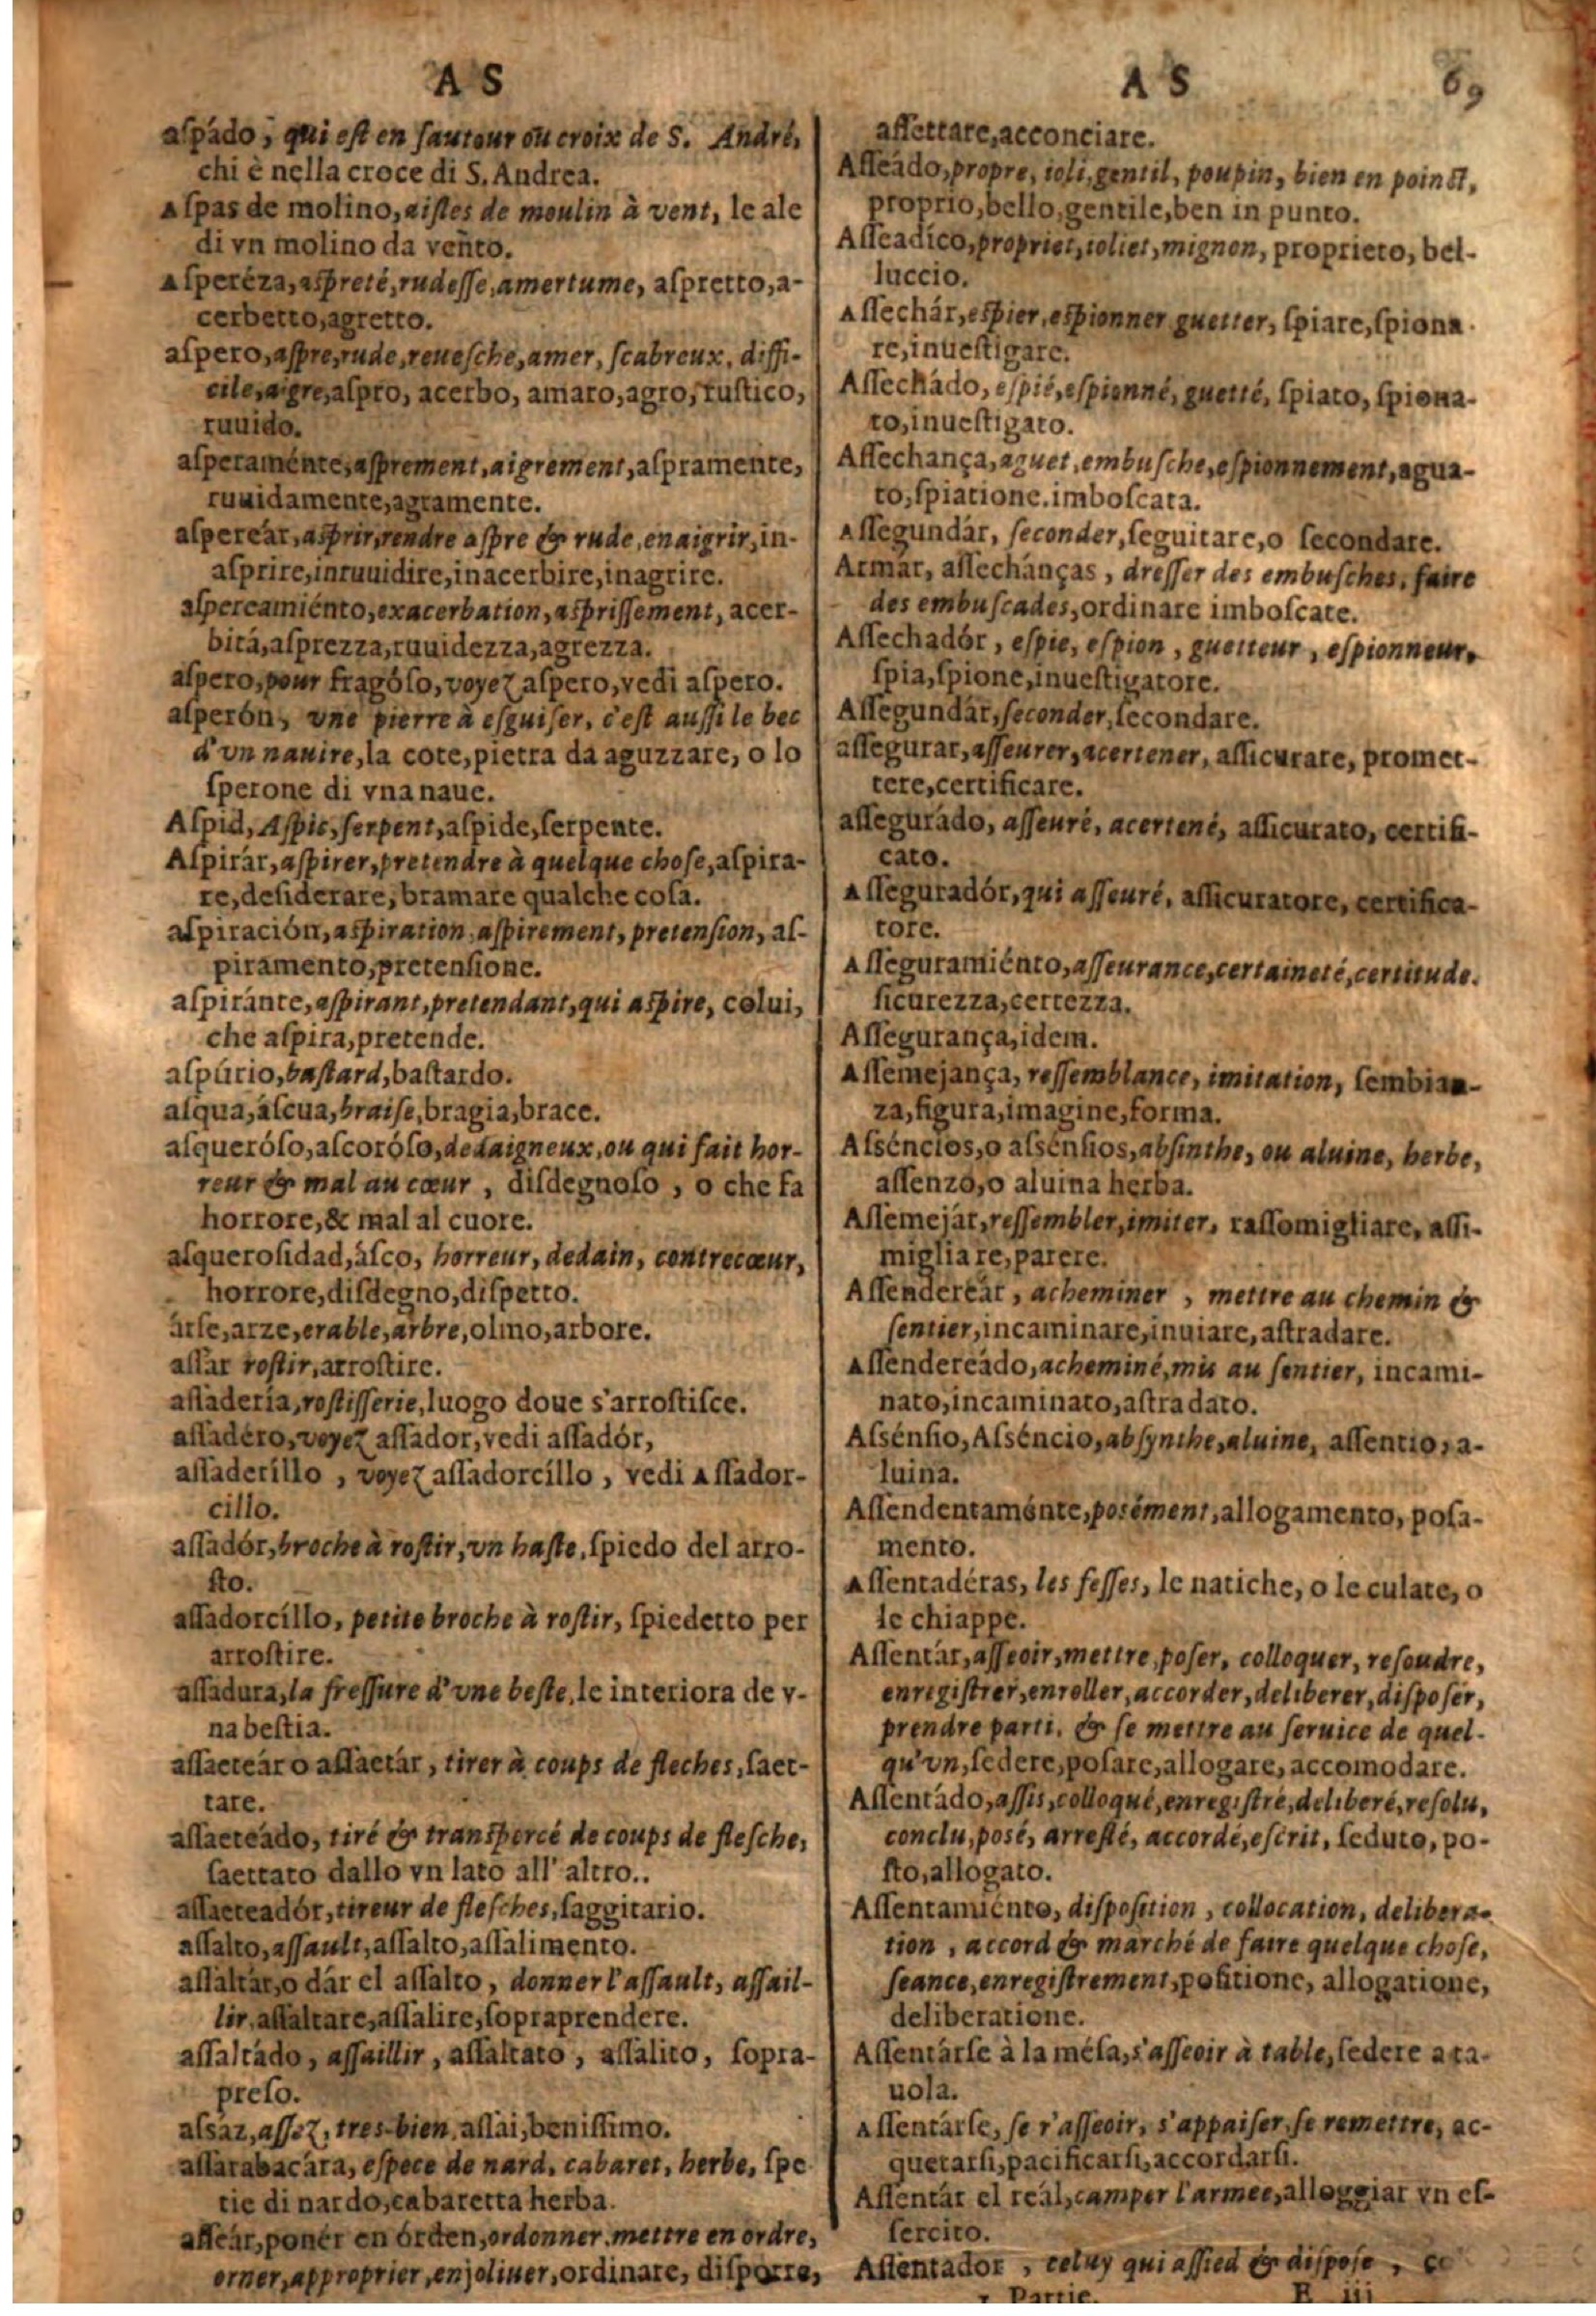 A S
aſpádo, qui eſt en ſautour ou croix de S. André,
chi è nella croce di S. Andrea.
Aſpas de molino, aiſles de moulin à vent, le ale
di vn molino da vento.
Aſperéza, aſpreté, rudeſſe, amertume, aſpretto, a-
cerbetto, agretto.
aſpero, aſpre, rude, reueſche, amer, ſcabreux, diffi-
cile, aigre, aſpro, acerbo, amaro, agro, ruſtico,
ruuido.
aſperaménte, aſprement, aigrement, aſpramente,
ruuidamente, agramente.
aſpereár, aſprir, rendre aſpre & rude, enaigrir, in-
aſprire, inruuidire, inacerbire, inagrire.
aſpereamiénto, exacerbation, aſpriſſement, acer-
bitá, aſprezza, ruuidezza, agrezza.
aſpero, pour fragóſo, voyez aſpero, vedi aſpero.
aſperón, vne pierre à eſguiſer, c'eſt auſſi le bec
d'vn nauire, la cote, pietra da aguzzare, o lo
ſperone di vna naue.
Aſpid, Aſpic, ſerpent, aſpide, ſerpente.
Aſpirár, aſpirer, pretendre à quelque choſe, aſpira-
re, deſiderare, bramare qualche coſa.
aſpiración, aſpiration, aſpirement, pretenſion, aſ-
piramento, pretenſione.
aſpiránte, aſpirant, pretendant, qui aſpire, colui,
che aſpira, pretende.
aſpúrio, baſtard, baſtardo.
aſqua, áſcua, braiſe, bragia, brace.
aſqueróſo, aſcoróſo, dedaigneux, ou qui fait hor-
reur & mal au cœur, diſdegnoſo, o che fa
horrore, & mal al cuore.
aſqueroſidad, áſco, horreur, dedain, contrecœur,
horrore, diſdegno, diſpetto.
árſe, arze, erable, arbre, olmo, arbore.
aſſar roſtir, arroſtire.
aſſadería, roſtiſſerie, luogo doue s'arroſtiſce.
aſſadéro, voyez aſſador, vedi aſſadór,
aſſaderillo, voyez aſſadorcíllo, vedi Aſſador-
cillo.
aſſadór, broche à roſtir, vn haſte, ſpiedo del arro-
ſto.
aſſadorcíllo, petite broche à roſtir, ſpiedetto per
arroſtire.
aſſadura, la freſſure d'vne beſte, le interiora de v-
na beſtia.
aſſaeteár o aſſaetár, tirer à coups de fleches, ſaet-
tare.
aſſaeteádo, tiré & tranſpercé de coups de fleſche,
ſaettato dallo vn lato all' altro..
aſſaeteadór, tireur de fleſches, ſaggitario.
aſſalto, aſſault, aſſalto, aſſalimento.
aſſaltár, o dár el aſſalto, donner l'aſſault, aſſail-
lir, aſſaltare, aſſalire, ſopraprendere.
aſſaltádo, aſſaillir, aſſaltato, aſſalito, ſopra-
preſo.
aſsáz, aſſez, tres-bien, aſſai, beniſſimo.
aſſarabacára, eſpece de nard, cabaret, herbe, ſpe
tie di nardo, cabaretta herba.
aſſeár, ponér en órden, ordonner, mettre en ordre,
orner, approprier, enjoliuer, ordinare, diſporre,
A S 69
aſſettare, acconciare.
Aſſeádo, propre, ioli, gentil, poupin, bien en poinct,
proprio, bello, gentile, ben in punto.
Aſſeadíco, propriet, ioliet, mignon, proprieto, bel-
luccio.
Aſſechár, eſpier, eſpionner guetter, ſpiare, ſpiona-
re, inueſtigare.
Aſſechádo, eſpié, eſpionné, guetté, ſpiato, ſpiona-
to, inueſtigato.
Aſſechança, aguet, embuſche, eſpionnement, agua-
to, ſpiatione. imboſcata.
Aſſegundár, ſeconder, ſeguitare, o ſecondare.
Armár, aſſechánças, dreſſer des embuſches, faire
des embuſcades, ordinare imboſcate.
Aſſechadór, eſpie, eſpion, guetteur, eſpionneur,
ſpia, ſpione, inueſtigatore.
Aſſegundár, ſeconder, ſecondare.
aſſegurar, aſſeurer, acertener, aſſicurare, promet-
tere, certificare.
aſſegurádo, aſſeuré, acertené, aſſicurato, certifi-
cato.
Aſſeguradór, qui aſſeuré, aſſicuratore, certifica-
tore.
Aſſeguramiénto, aſſeurance, certaineté, certitude.
ſicurezza, certezza.
Aſſegurança, idem.
Aſſemejança, reſſemblance, imitation, ſembian-
za, figura, imagine, forma.
Aſséncios, o aſsénſios, abſinthe, ou aluine, herbe,
aſſenzo, o aluina herba.
Aſſemejár, reſſembler, imiter, raſſomigliare, aſſi-
migliare, parere.
Aſſendereár, acheminer, mettre au chemin &
ſentier, incaminare, inuiare, aſtradare.
Aſſendereádo, acheminé, mis au ſentier, incami-
nato, incaminato, aſtradato.
Aſsénſio, Aſséncio, abſynthe, aluine, aſſentio, a-
luina.
Aſſendentaménte, poſément, allogamento, poſa-
mento.
Aſſentadéras, les feſſes, le natiche, o le culate, o
le chiappe.
Aſſentár, aſſeoir, mettre, poſer, colloquer, reſoudre,
enregiſtrer, enroller, accorder, deliberer, diſpoſer,
prendre parti, & ſe mettre au ſeruice de quel-
qu'vn, ſedere, poſare, allogare, accomodare.
Aſſentádo, aſſis, colloqué, enregiſtré, deliberé, reſolu,
conclu, poſé, arreſté, accordé, eſcrit, ſeduto, po-
ſto, allogato.
Aſſentamiénto, diſpoſition, collocation, delibera-
tion, accord & marché de faire quelque choſe,
ſeance, enregiſtrement, poſitione, allogatione,
deliberatione.
Aſſentárſe à la méſa, s'aſſeoir à table, ſedere a ta-
uola.
Aſſentárſe, ſe r'aſſeoir, s'appaiſer, ſe remettre, ac-
quetarſi, pacificarſi, accordarſi.
Aſſentár el reál, camper l'armee, alloggiar vn eſ-
ſercito.
Aſſentador, celuy qui aſſied & diſpoſe,
Partie. E iii